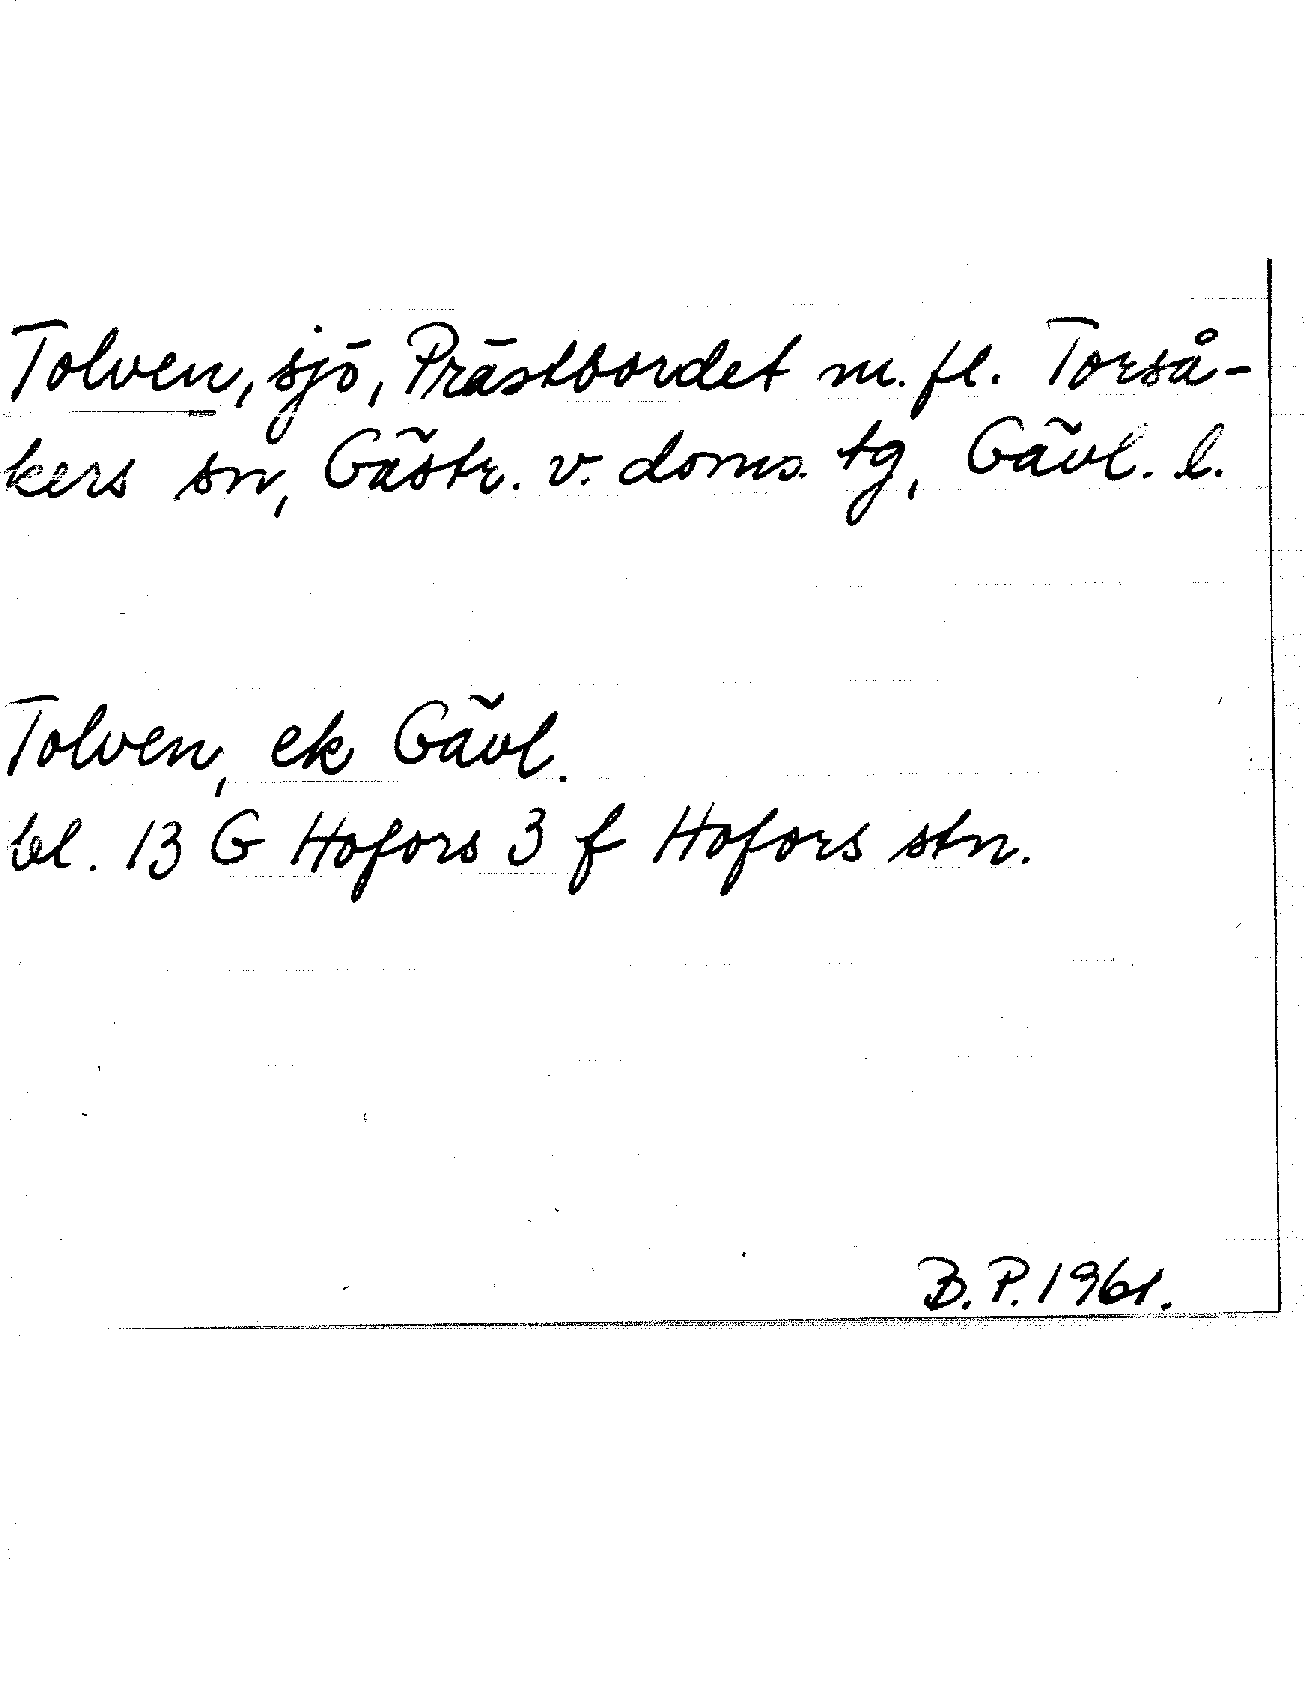 Tolven, sjö, Prästbordet m. fl. Torså-
kers sn, Gästr. v. doms. tg, Gävl. l.
Tolven, ek Gävl.
bl. 13 G Hofors 3 f Hofors stn.
B. P. 1961.